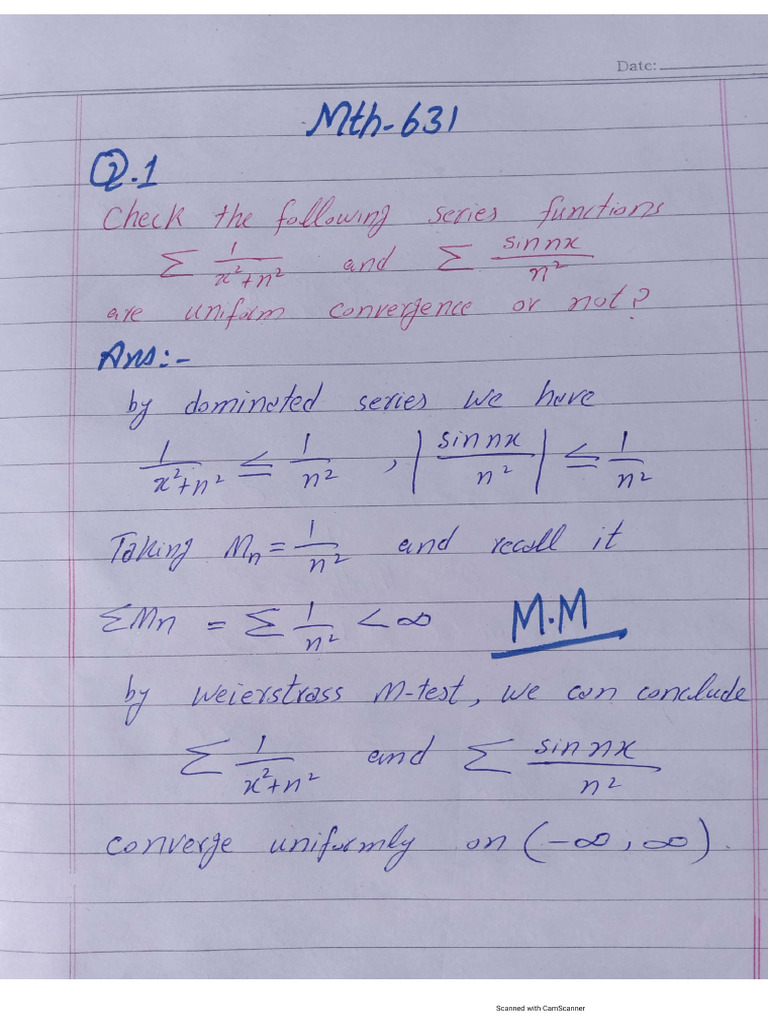 Date:
Mth-631
Q.1
Check the following series functions
∑ 1/(x²+n²) and ∑ sin nx/n²
are uniform convergence or not?
Ans:-
by dominated series we have
1/(x²+n²) ≤ 1/n² , |sin nx/n²| ≤ 1/n²
Taking Mn = 1/n² and recall it
∑Mn = ∑ 1/n² < ∞ M.M
by Weierstrass M-test, we can conclude
∑ 1/(x²+n²) and ∑ sin nx/n²
converge uniformly on (-∞, ∞).
Scanned with CamScanner